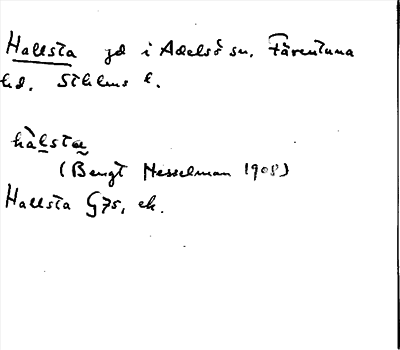 Hallsta gd i Adelsö sn. Färentuna
hd. Sthlms l.
hàlsta
(Bengt Hesselman 1908)
Hallsta G75, ek.